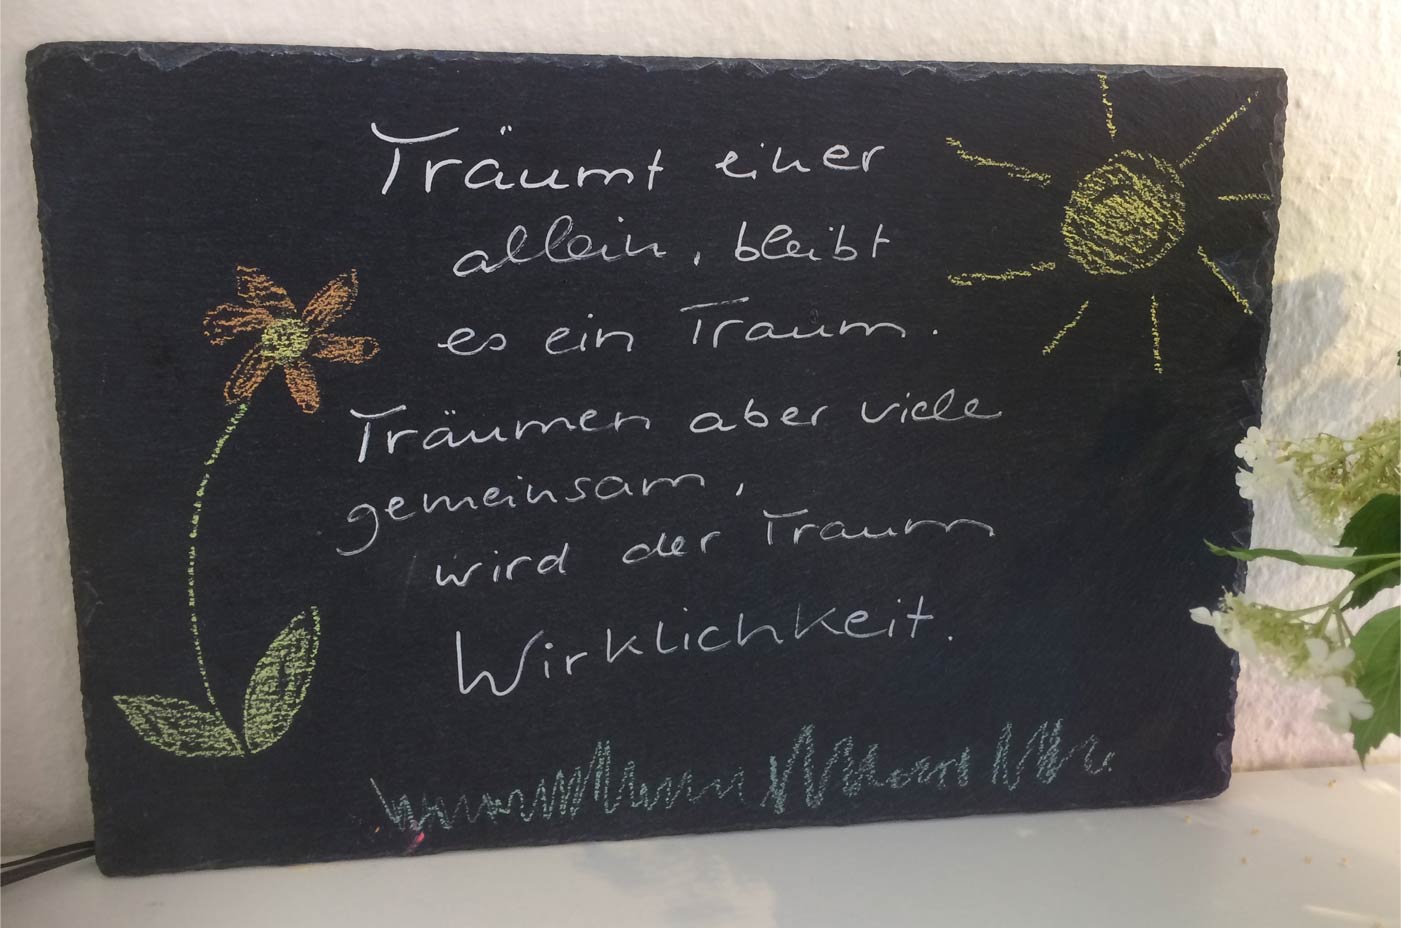 Träumt einer
allein, bleibt
es ein Traum.
Träumen aber viele
gemeinsam,
wird der Traum
Wirklichkeit.